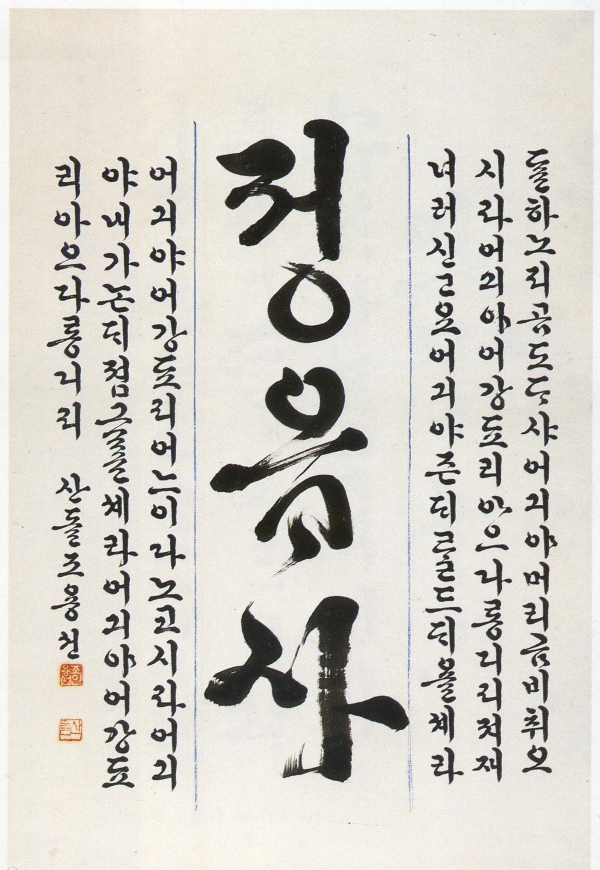 ᄃᆞᆯ하노피곰도ᄃᆞ샤어긔야머리곰비취오
시라어긔야어강됴리아으다롱디리져재
녀러신고요어긔야즌ᄃᆡ를드ᄃᆡ욜셰라
정읍사
어긔야어강됴리어느이다노코시라어긔
야내가논ᄃᆡ점그ᄅᆞᆯ셰라어긔야어강됴
리아으다롱디리 산돌조용선